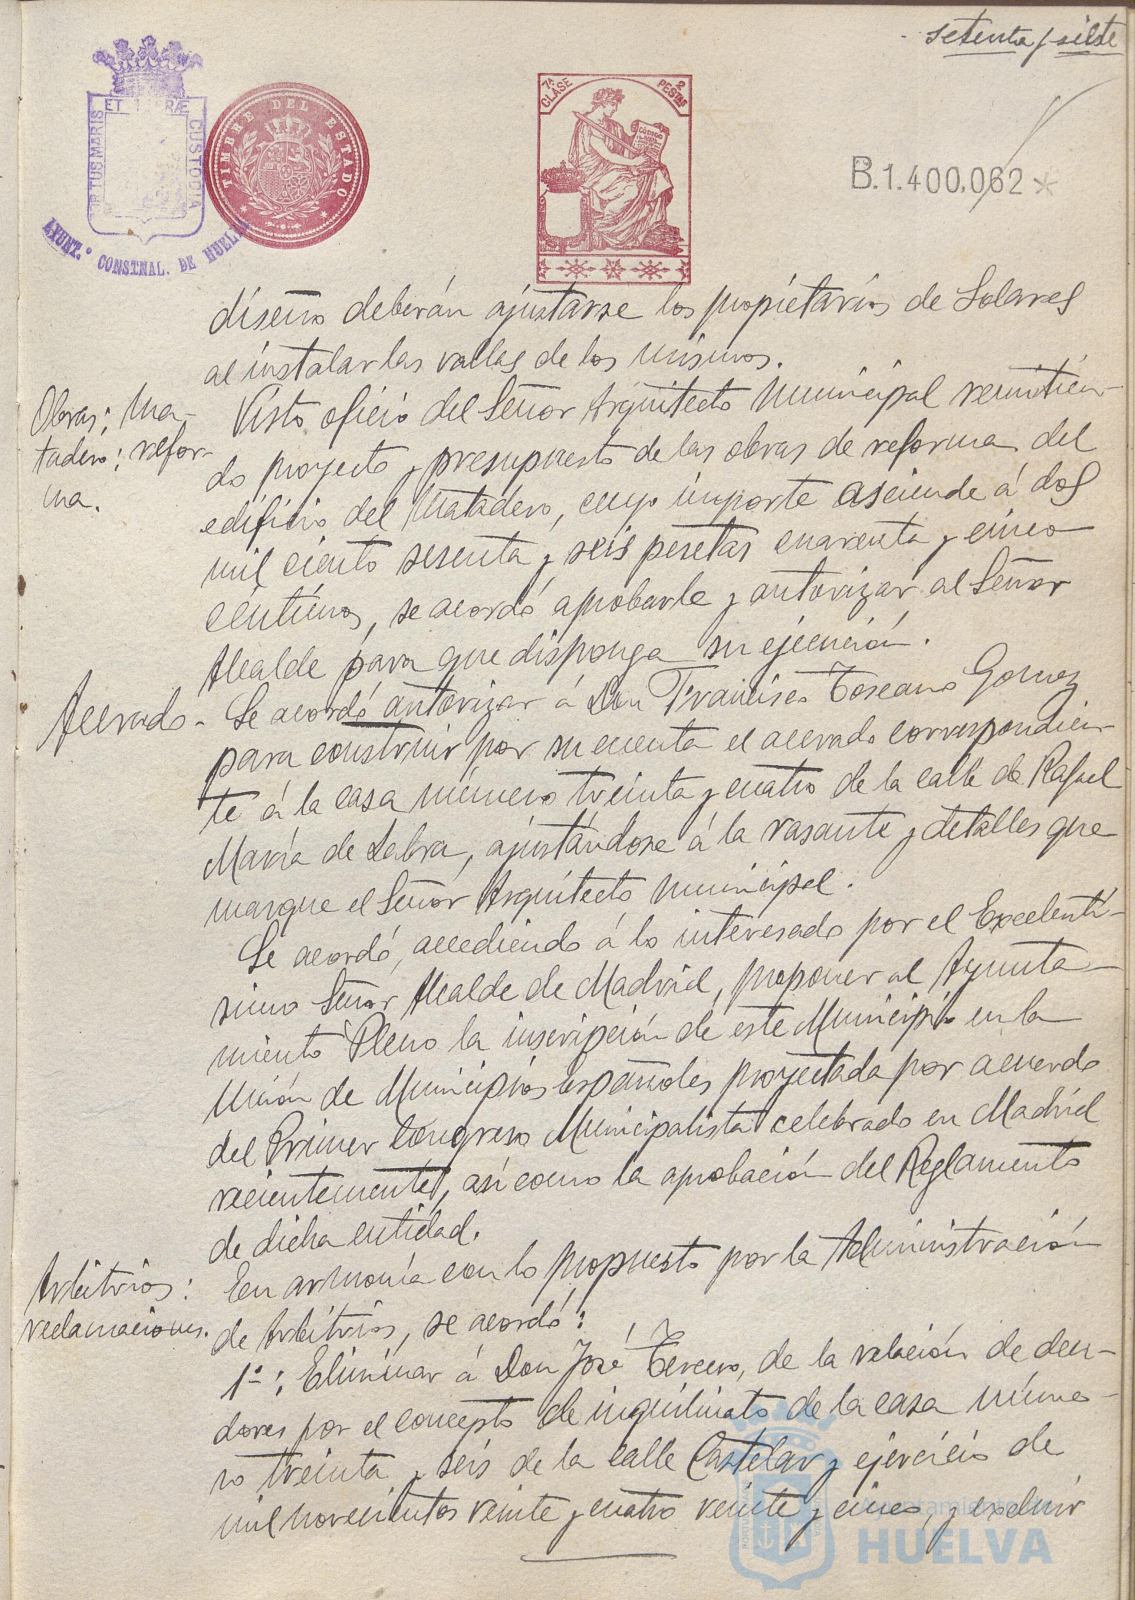 setenta y siete
PORTUS MARIS ET TERRÆ CUSTODIA
AYUNT.º CONSTNAL. DE HUELVA
TIMBRE DEL ESTADO
7ª CLASE
2 PESTAS
CÓDIGO
B.1.400.062*
diseño deberán ajustarse los propietarios de Solares
al instalar las vallas de los mismos.
Obras; Ma-
tadero; refor-
ma.
Visto oficio del Señor Arquitecto Municipal remitien-
do proyecto y presupuesto de las obras de reforma del
edificio del Matadero, cuyo importe asciende á dos
mil ciento sesenta y seis pesetas cuarenta y cinco
céntimos, se acordó aprobarle y autorizar al Señor
Alcalde para que disponga su ejecución.
Acerado-
Se acordó autorizar á Don Francisco Toscano Gomez
para construir por su cuenta el acerado correspondien-
te á la casa número treinta y cuatro de la calle de Rafael
María de Labra, ajustándose á la rasante y detalles que
marque el Señor Arquitecto Municipal.
Se acordó, accediendo á lo interesado por el Excelentí-
simo Señor Alcalde de Madrid, proponer al Ayunta-
miento Pleno la inscripción de este Municipio en la
Unión de Municipios españoles proyectada por acuerdo
del Primer Congreso Municipalista celebrado en Madrid
recientemente, así como la aprobación del Reglamento
de dicha entidad.
Arbitrios:
reclamaciones.
En armonía con lo propuesto por la Administración
de Arbitrios, se acordó:
1º: Eliminar á Don José Tercero, de la relación de deu-
dores por el concepto de inquilinato de la casa núme-
ro treinta y seis de la calle Castelar y ejercicio de
mil novecientos veinte y cuatro veinte y cinco, y excluir
Ayuntamiento de
HUELVA